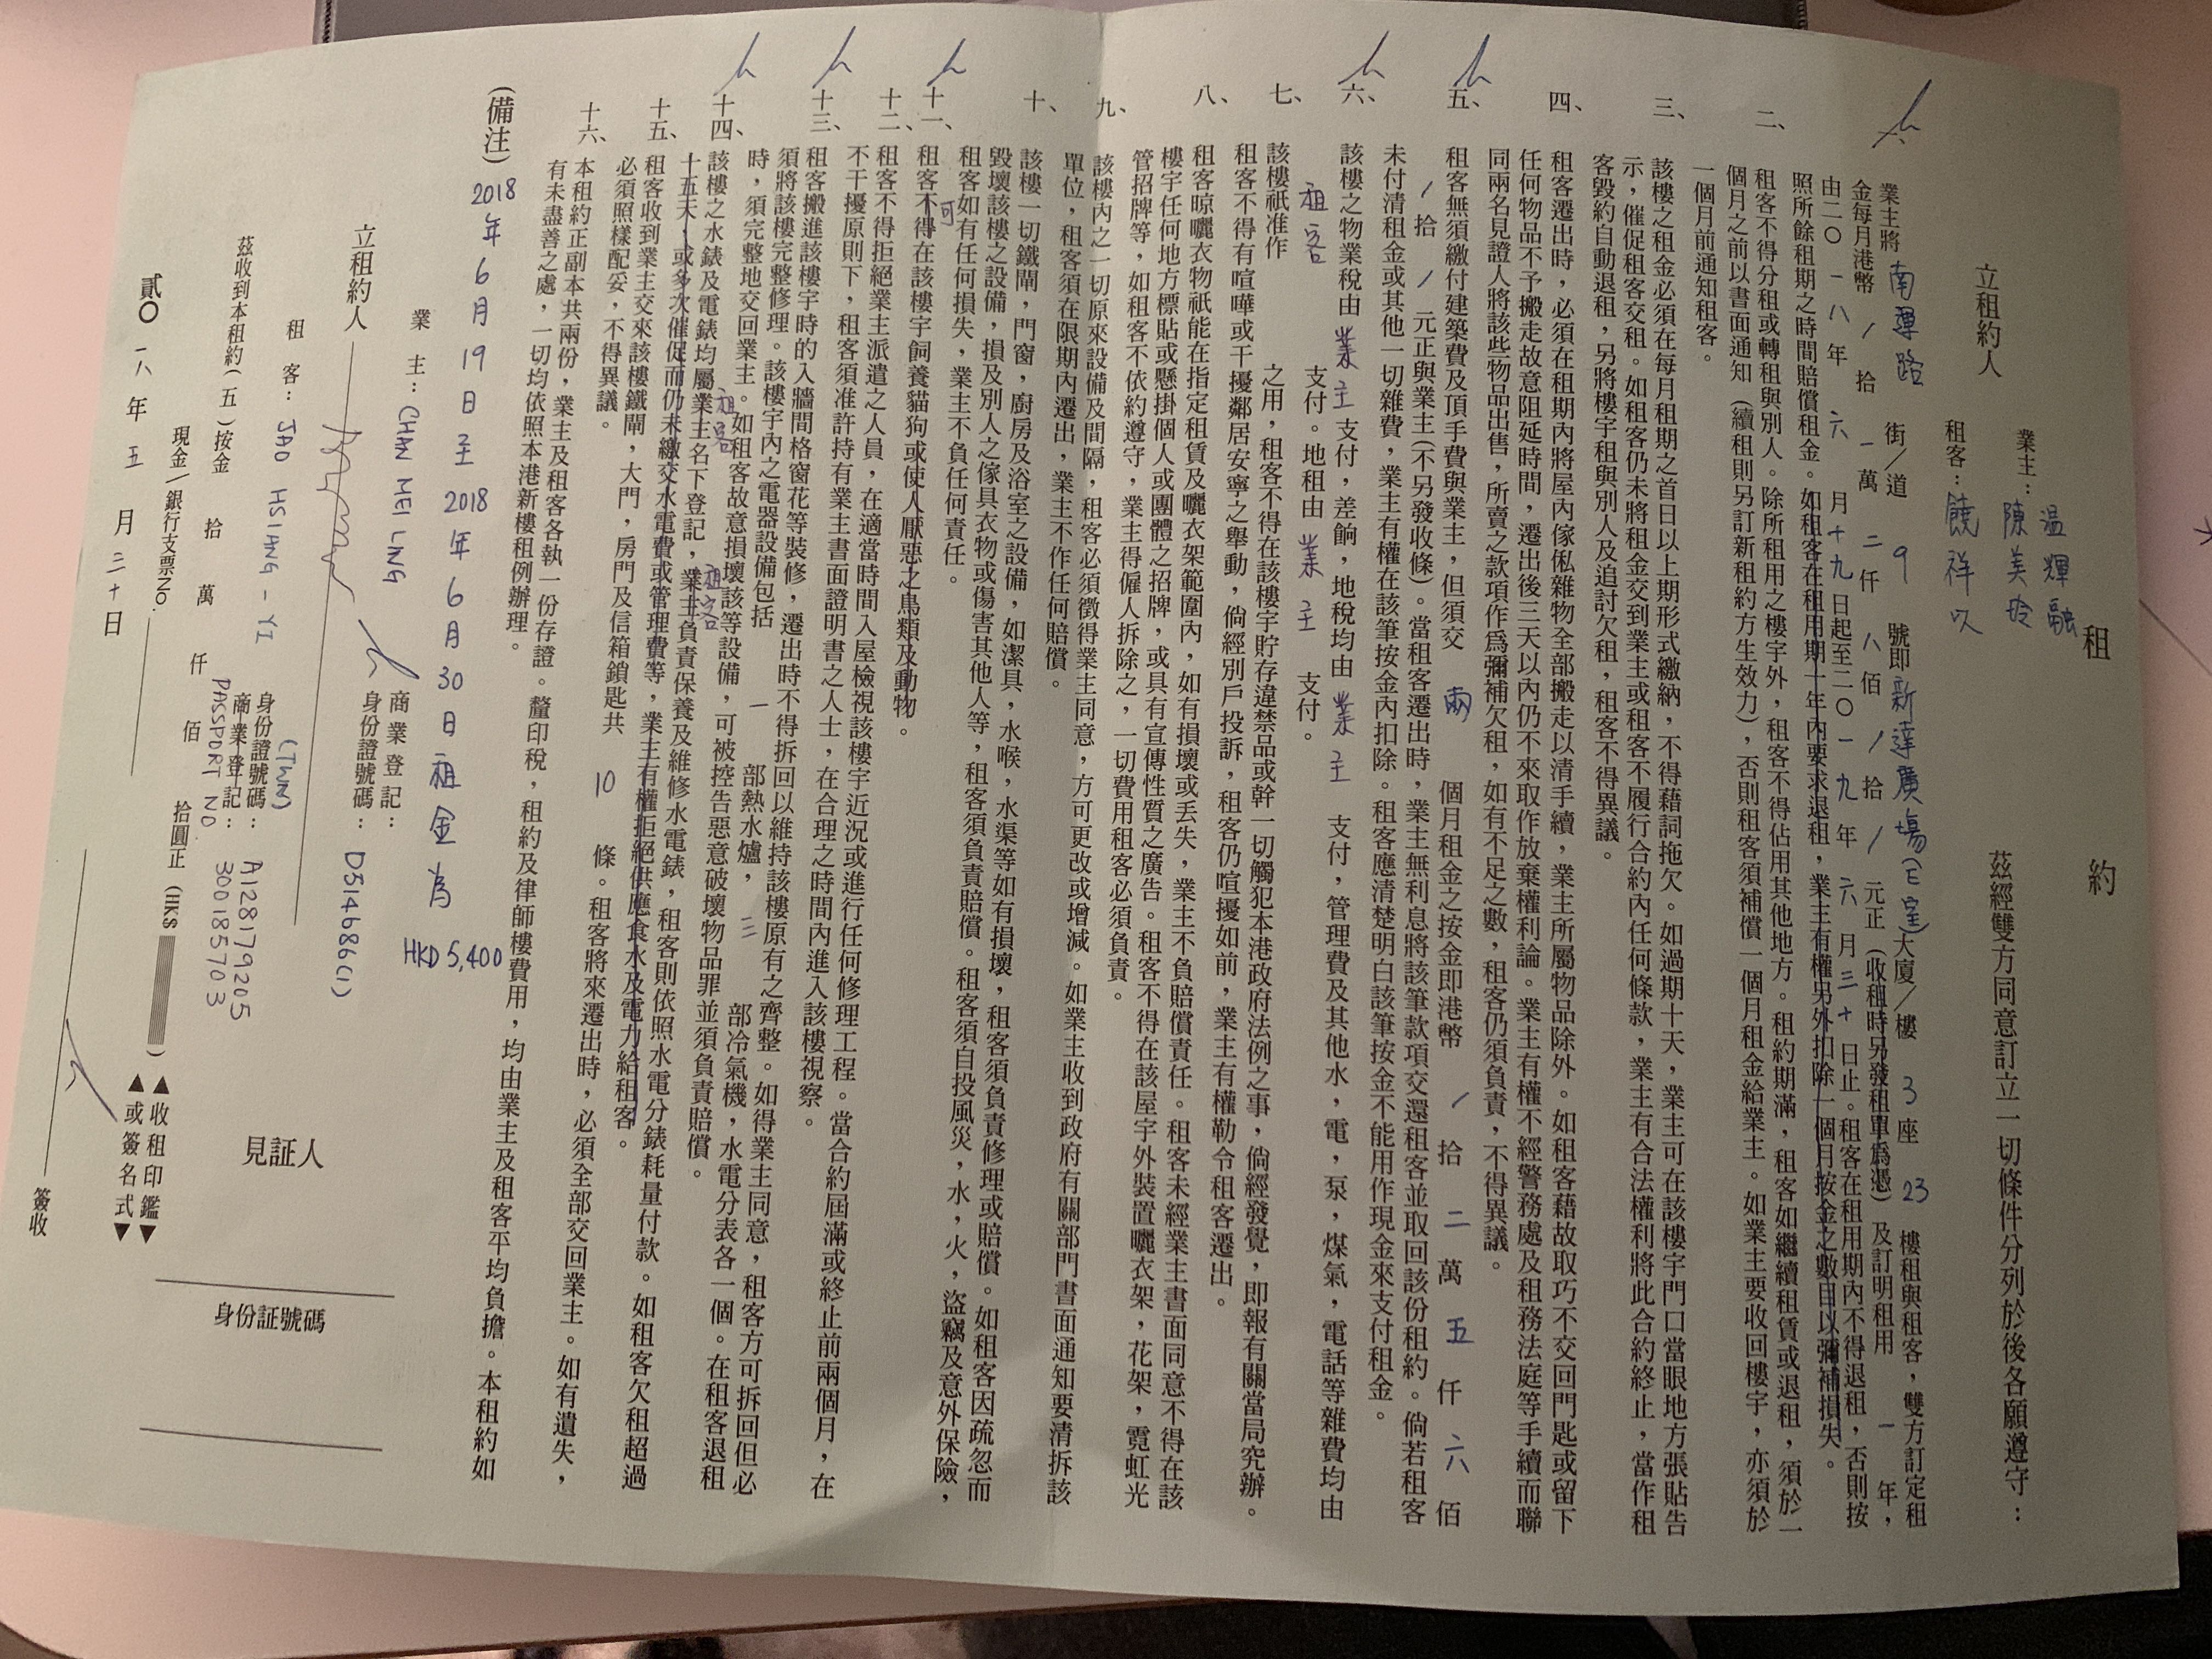 租約
立租約人
業主：
溫輝融
陳美玲
租客：饒祥吹
茲經雙方同意訂立一切條件分列於後各願遵守：
一、
業主將南運路街／道9號即新達廣場(E室)大廈／樓3座23樓租與租客，雙方訂定租
金每月港幣／拾一萬二仟八佰／拾／元正（收租時另發租單為憑）及訂明租用一年，
由二〇一八年六月十九日起至二〇一九年六月三十日止。租客在租用期內不得退租，否則按
照所餘租期之時間賠償租金。如租客在租用期一年內要求退租，業主有權另外扣除一個月按金之數目以彌補損失。
二、
租客不得分租或轉租與別人。除所租用之樓宇外，租客不得佔用其他地方。租約期滿，租客如繼續租賃或退租，須於一
個月之前以書面通知（續租則另訂新租約方生效力），否則租客須補償一個月租金給業主。如業主要收回樓宇，亦須於
一個月前通知租客。
三、
該樓之租金必須在每月租期之首日以上期形式繳納，不得藉詞拖欠。如過期十天，業主可在該樓宇門口當眼地方張貼告
示，催促租客交租。如租客仍未將租金交到業主或租客不履行合約內任何條款，業主有合法權利將此合約終止，當作租
客毀約自動退租，另將樓宇租與別人及追討欠租，租客不得異議。
四、
租客遷出時，必須在租期內將屋內傢俬雜物全部搬走以清手續，業主所屬物品除外。如租客藉故取巧不交回門匙或留下
任何物品不予搬走故意阻延時間，遷出後三天以內仍不來取作放棄權利論。業主有權不經警務處及租務法庭等手續而聯
同兩名見證人將該些物品出售，所賣之款項作爲彌補欠租，如有不足之數，租客仍須負責，不得異議。
五、
租客無須繳付建築費及頂手費與業主，但須交兩個月租金之按金即港幣／拾二萬五仟六佰
／拾／元正與業主（不另發收條）。當租客遷出時，業主無利息將該筆款項交還租客並取回該份租約。倘若租客
未付清租金或其他一切雜費，業主有權在該筆按金內扣除。租客應清楚明白該筆按金不能用作現金來支付租金。
六、
該樓之物業稅由業主支付，差餉，地稅均由業主支付，管理費及其他水，電，泵，煤氣，電話等雜費均由
租客支付。地租由業主支付。
七、
該樓祇准作之用，租客不得在該樓宇貯存違禁品或幹一切觸犯本港政府法例之事，倘經發覺，即報有關當局究辦。
租客不得有喧嘩或干擾鄰居安寧之舉動，倘經別戶投訴，租客仍喧擾如前，業主有權勒令租客遷出。
八、
租客晾曬衣物祇能在指定租賃及曬衣架範圍內，如有損壞或丟失，業主不負賠償責任。租客未經業主書面同意不得在該
樓宇任何地方標貼或懸掛個人或團體之招牌，或具有宣傳性質之廣告。租客不得在該屋宇外裝置曬衣架，花架，霓虹光
管招牌等，如租客不依約遵守，業主得僱人拆除之，一切費用租客必須負責。
九、
該樓內之一切原來設備及間隔，租客必須徵得業主同意，方可更改或增減。如業主收到政府有關部門書面通知要清拆該
單位，租客須在限期內遷出，業主不作任何賠償。
十、
該樓一切鐵閘，門窗，廚房及浴室之設備，如潔具，水喉，水渠等如有損壞，租客須負責修理或賠償。如租客因疏忽而
毀壞該樓之設備，損及別人之傢具衣物或傷害其他人等，租客須負責賠償。租客須自投風災，水，火，盜竊及意外保險，
租客如有任何損失，業主不負任何責任。
十一、
租客不得可在該樓宇飼養貓狗或使人厭惡之鳥類及動物。
十二、
租客不得拒絕業主派遣之人員，在適當時間入屋檢視該樓宇近況或進行任何修理工程。當合約屆滿或終止前兩個月，在
不干擾原則下，租客須准許持有業主書面證明書之人士，在合理之時間內進入該樓視察。
十三、
租客搬進該樓宇時的入牆間格窗花等裝修，遷出時不得拆回以維持該樓原有之齊整。如得業主同意，租客方可拆回但必
須將該樓完整修理。該樓宇內之電器設備包括一部熱水爐，三部冷氣機，水電分表各一個。在租客退租
時，須完整地交回業主。如租客故意損壞該等設備，可被控告惡意破壞物品罪並須負責賠償。
十四、
該樓之水錶及電錶均屬業主租客名下登記，業主租客負責保養及維修水電錶，租客則依照水電分錶耗量付款。如租客欠租超過
十五天，或多次催促而仍未繳交水電費或管理費等，業主有權拒絕供應食水及電力給租客。
十五、
租客收到業主交來該樓鐵閘，大門，房門及信箱鎖匙共10條。租客將來遷出時，必須全部交回業主。如有遺失，
必須照樣配妥，不得異議。
十六、
本租約正副本共兩份，業主及租客各執一份存證。釐印稅，租約及律師樓費用，均由業主及租客平均負擔。本租約如
有未盡善之處，一切均依照本港新樓租例辦理。
(備注) 2018年6月19日至2018年6月30日租金為HKD 5,400
立租約人
業主：CHAN MEI LING
商業登記：
身份證號碼：D514686(1)
租客：JAO HSIANG-YI
(TWN)
身份證號碼：A128179205
商業登記：
PASSPORT NO 300185703
見証人
身份証號碼
茲收到本租約（五）按金拾萬仟佰拾圓正（HK$）
現金／銀行支票NO.
▲收租印鑑▼
▲或簽名式▼
簽收
貳〇一八年五月三十日